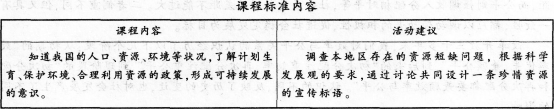 课程标准内容
课程内容
活动建议
知道我国的人口、资源、环境等状况,了解计划生
育、保护环境、合理利用资源的政策,形成可持续发展
的意识。
调查本地区存在的资源短缺问题,根据科学
发展观的要求,通过讨论共同设计一条珍惜资源
的宣传标语。